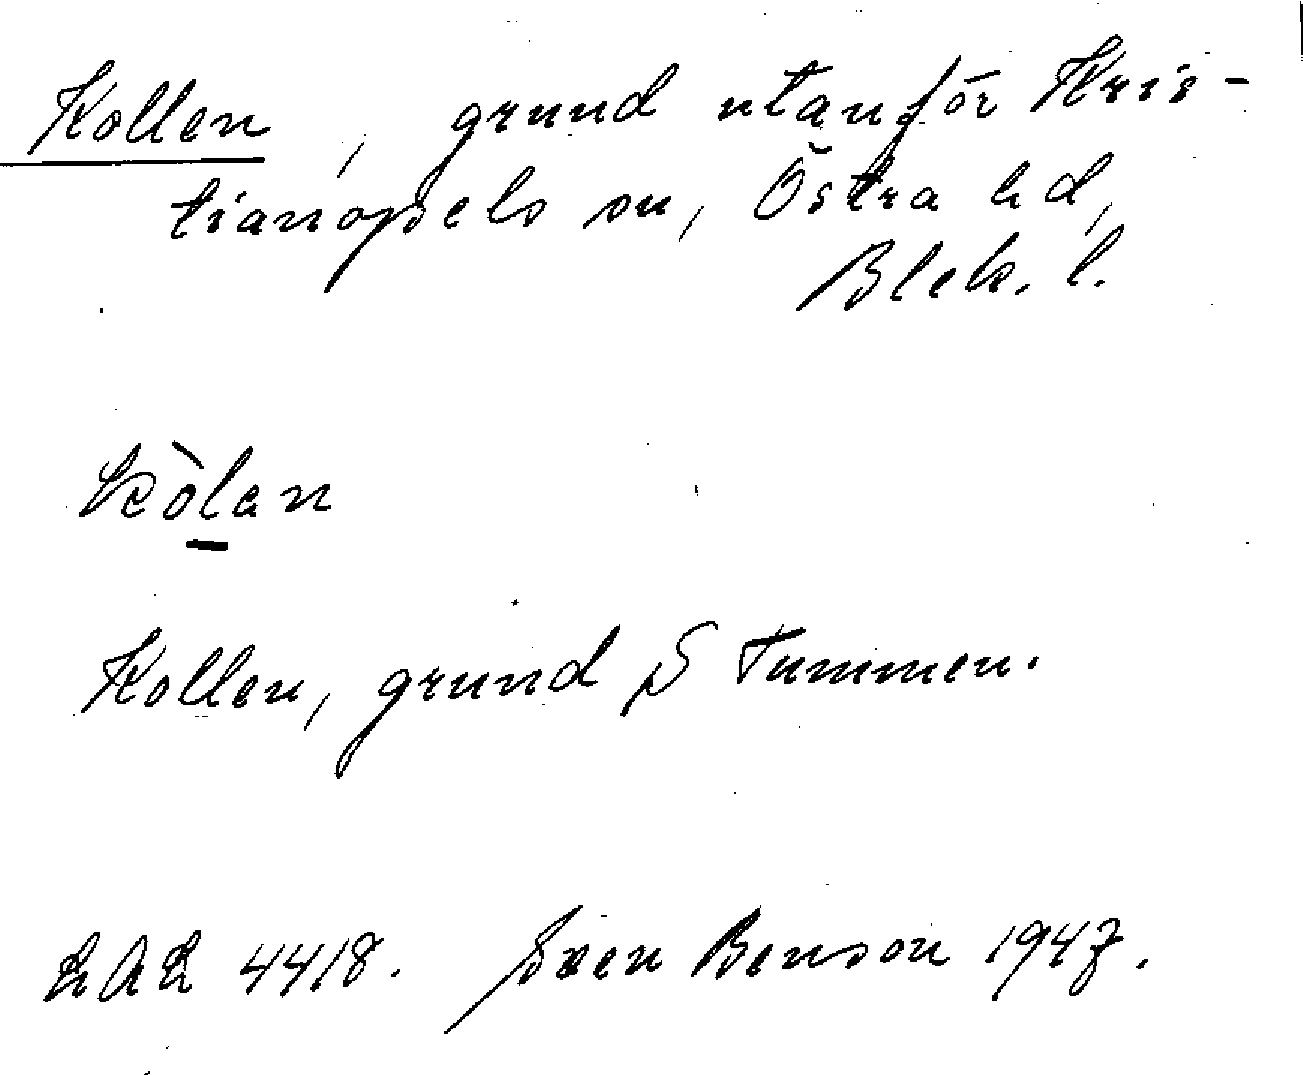 Kollen, grund utanför Kris-
tianopels sn, Östra hd,
Blek. l.
kòlan
Kollen, grund S Tummen.
LAL 4418. Sven Benson 1947.